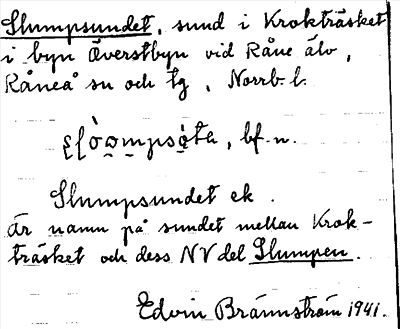 Slumpsundet, sund i Krokträsket
i byn Överstbyn vid Råne älv,
Råneå sn och tg, Norrb. l.
bf. n.
Slumpsundet ek.
är namn på sundet mellan Krok-
träsket och dess NV del Slumpen.
Edvin Brännström 1941.